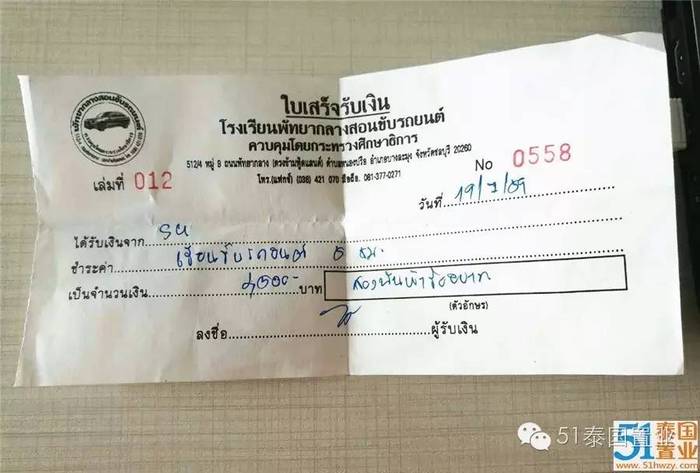 พัทยากลางสอนขับรถยนต์
ใบเสร็จรับเงิน
โรงเรียนพัทยากลางสอนขับรถยนต์
ควบคุมโดยกระทรวงศึกษาธิการ
512/4 หมู่ 9 ถนนพัทยากลาง (ตรงข้ามฟู้ดแลนด์) ตำบลหนองปรือ อำเภอบางละมุง จังหวัดชลบุรี 20260
โทร.(แฟกซ์) (038) 421 070 มือถือ. 081-377-0271
เล่มที่ 012
No 0558
วันที่
ได้รับเงินจาก
ชำระค่า เรียนขับรถยนต์ 5 ชม.
เป็นจำนวนเงิน 2,500.- บาท สองพันห้าร้อยบาท
(ตัวอักษร)
ลงชื่อ ผู้รับเงิน
51泰国置业
51泰国置业
www.51hwzy.com